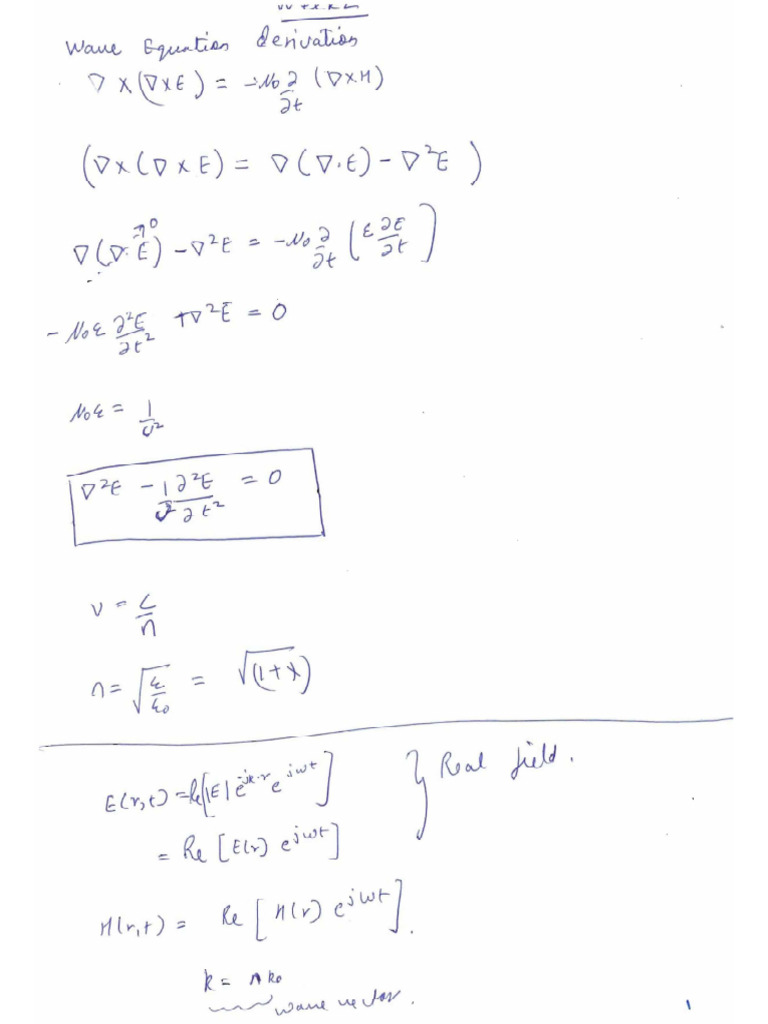 Wave Equation derivation
∇ × (∇×E) = -μ₀ ∂/∂t (∇×H)
(∇×(∇×E) = ∇(∇·E) - ∇²E)
∇(∇·E)→0 - ∇²E = -μ₀ ∂/∂t (ε ∂E/∂t)
- μ₀ε ∂²E/∂t² + ∇²E = 0
μ₀ε = 1/v²
∇²E - 1/v² ∂²E/∂t² = 0
v = c/n
n = √(ε/ε₀) = √(1+χ)
E(r,t) = Re[|E| e^{-jk·r} e^{jωt}] } Real field.
= Re [E(r) e^{jωt}]
H(r,t) = Re [H(r) e^{jωt}].
k = n k₀
wave vector.
1